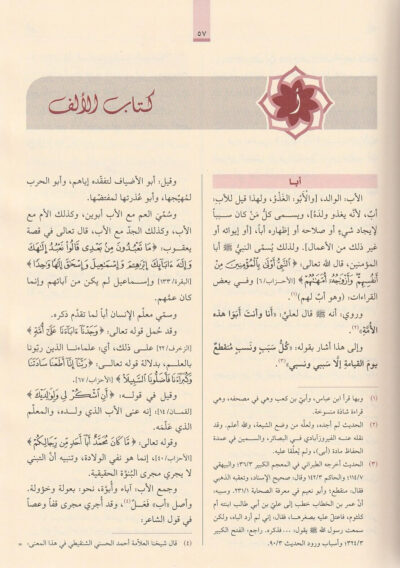 ٥٧
كتاب الألف
أ
أبا
الأب: الوالد، [والأَبْوُ: الغَذْوُ، ولهذا قيل للأب:
أبٌ، لأنّه يغذو ولدَهُ]، ويسمى كلُّ مَنْ كان سبباً
لإيجاد شيءٍ أو صلاحه أو إظهاره أباً، [أو إيوائه أو
غير ذلك من الأعمال]. ولذلك يُسمّى النبيُّ ﷺ أبا
المؤمنين، قال الله تعالى: ﴿النَّبِيُّ أَوْلَى بِالْمُؤْمِنِينَ مِنْ
أَنفُسِهِمْ وَأَزْوَاجُهُ أُمَّهَاتُهُمْ﴾ [الأحزاب/٦] وفي بعض
القراءات: (وهو أبٌ لهم)(١).
وروي، أنه ﷺ قال لعليٍّ: «أنا وأنتَ أبَوَا هذه
الأمّة»(٢).
وإلى هذا أشار بقوله: «كُلُّ سَبَبٍ ونَسبٍ مُنقطعٌ
يومَ القيامةِ إلّا سببي ونسبي»(٣).
(١) وبها قرأ ابن عباس، وأبيّ بن كعب وهي في مصحفه، وهي
قراءة شاذة منسوخة.
(٢) الحديث لم أجده، ولعلّه من وضع الشيعة، والله أعلم. وقد
نقله عنه الفيروزآبادي في البصائر، والسمين في عمدة
الحفاظ مادة (أبي)، ولم يُعلّقا عليه.
(٣) الحديث أخرجه الطبراني في المعجم الكبير ٣٦/٣، والبيهقي
١١٤/٧، والحاكم ١٤٢/٣ وقال: صحيح الإسناد، وتعقبه الذهبي
فقال: منقطع؛ وأبو نعيم في معرفة الصحابة ٢٣١/١. وسببه:
أنّ عمر بن الخطاب خطب إلى عليّ بن أبي طالب ابنته أم
كلثوم، فاعتلّ عليه بصغرها، فقال: إني لم أرد الباه، ولكن
سمعت رسول الله ﷺ يقول:... فذكره. راجع: الفتح الكبير
٣٢٤/٣، وأسباب ورود الحديث ٩٠/٣.
وقيل: أبو الأضياف لتفقّده إياهم، وأبو الحرب
لمُهيّجها، وأبو عُذرتها لمفتضّها.
وسُمّيَ العم مع الأب أبوين، وكذلك الأم مع
الأب، وكذلك الجدّ مع الأب، قال تعالى في قصة
يعقوب: ﴿مَا تَعْبُدُونَ مِنْ بَعْدِي قَالُوا نَعْبُدُ إِلَٰهَكَ
وَإِلَٰهَ آبَائِكَ إِبْرَاهِيمَ وَإِسْمَاعِيلَ وَإِسْحَاقَ إِلَٰهًا وَاحِدًا﴾
[البقرة/١٣٣] وإسماعيل لم يكن من آبائهم وإنما
كان عمّهم.
وسمّي معلّم الإنسان أباً لما تقدّم ذكره.
وقد حُمل قوله تعالى: ﴿وَجَدْنَا آبَاءَنَا عَلَىٰ أُمَّةٍ﴾
[الزخرف/٢٢] على ذلك، أي: علماءنا الذين ربّونا
بالعلم، بدلالة قوله تعالى: ﴿رَبَّنَا إِنَّا أَطَعْنَا سَادَتَنَا
وَكُبَرَاءَنَا فَأَضَلُّونَا السَّبِيلَا﴾ [الأحزاب/٦٧].
وقيل في قوله: ﴿أَنِ اشْكُرْ لِي وَلِوَالِدَيْكَ﴾
[لقمان/١٤]: إنه عنى الأب الذي ولده، والمعلّم
الذي علّمه.
وقوله تعالى: ﴿مَا كَانَ مُحَمَّدٌ أَبَا أَحَدٍ مِنْ رِجَالِكُمْ﴾
[الأحزاب/٤٠]، إنما هو نفي الولادة، وتنبيه أنّ التبني
لا يجري مجرى البُنوّة الحقيقية.
وجمع الأب: آباء وأُبوّة، نحو: بعولة وخؤولة.
وأصل «أب» فَعَلٌ(٤)، وقد أُجري مجرى قفاً وعصاً
في قول الشاعر:
(٤) قال شيخنا العلّامة أحمد الحسني الشنقيطي في هذا المعنى: =